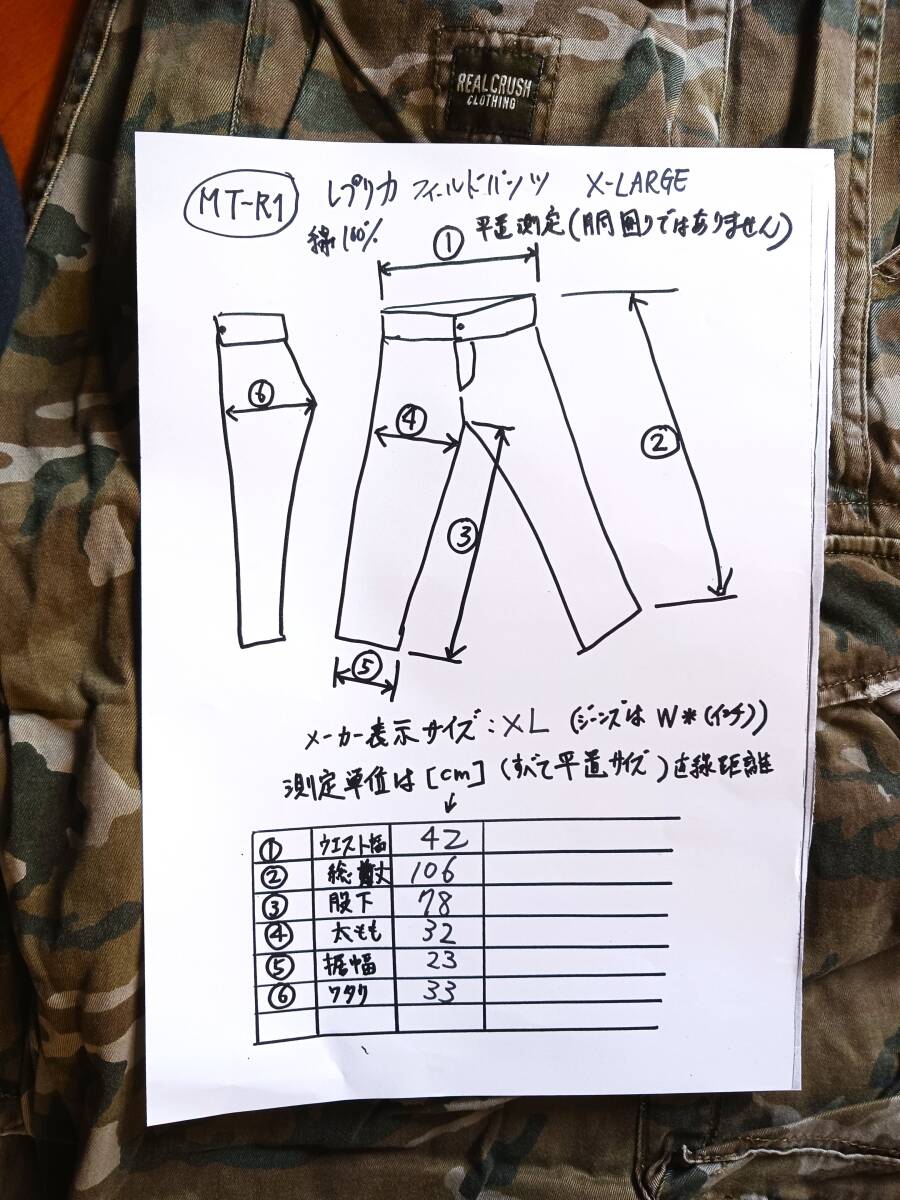 REALCRUSH
CLOTHING
MT-R1 レプリカ フィールドパンツ X-LARGE
綿100% ① 平置測定(胴囲りではありません)
⑥
④
②
③
⑤
メーカー表示サイズ:XL (ジーンズはW*(インチ))
測定単位は[cm] (すべて平置サイズ)直線距離
① ウエスト幅 42
② 総丈 106
③ 股下 78
④ 太もも 32
⑤ 裾幅 23
⑥ ワタリ 33